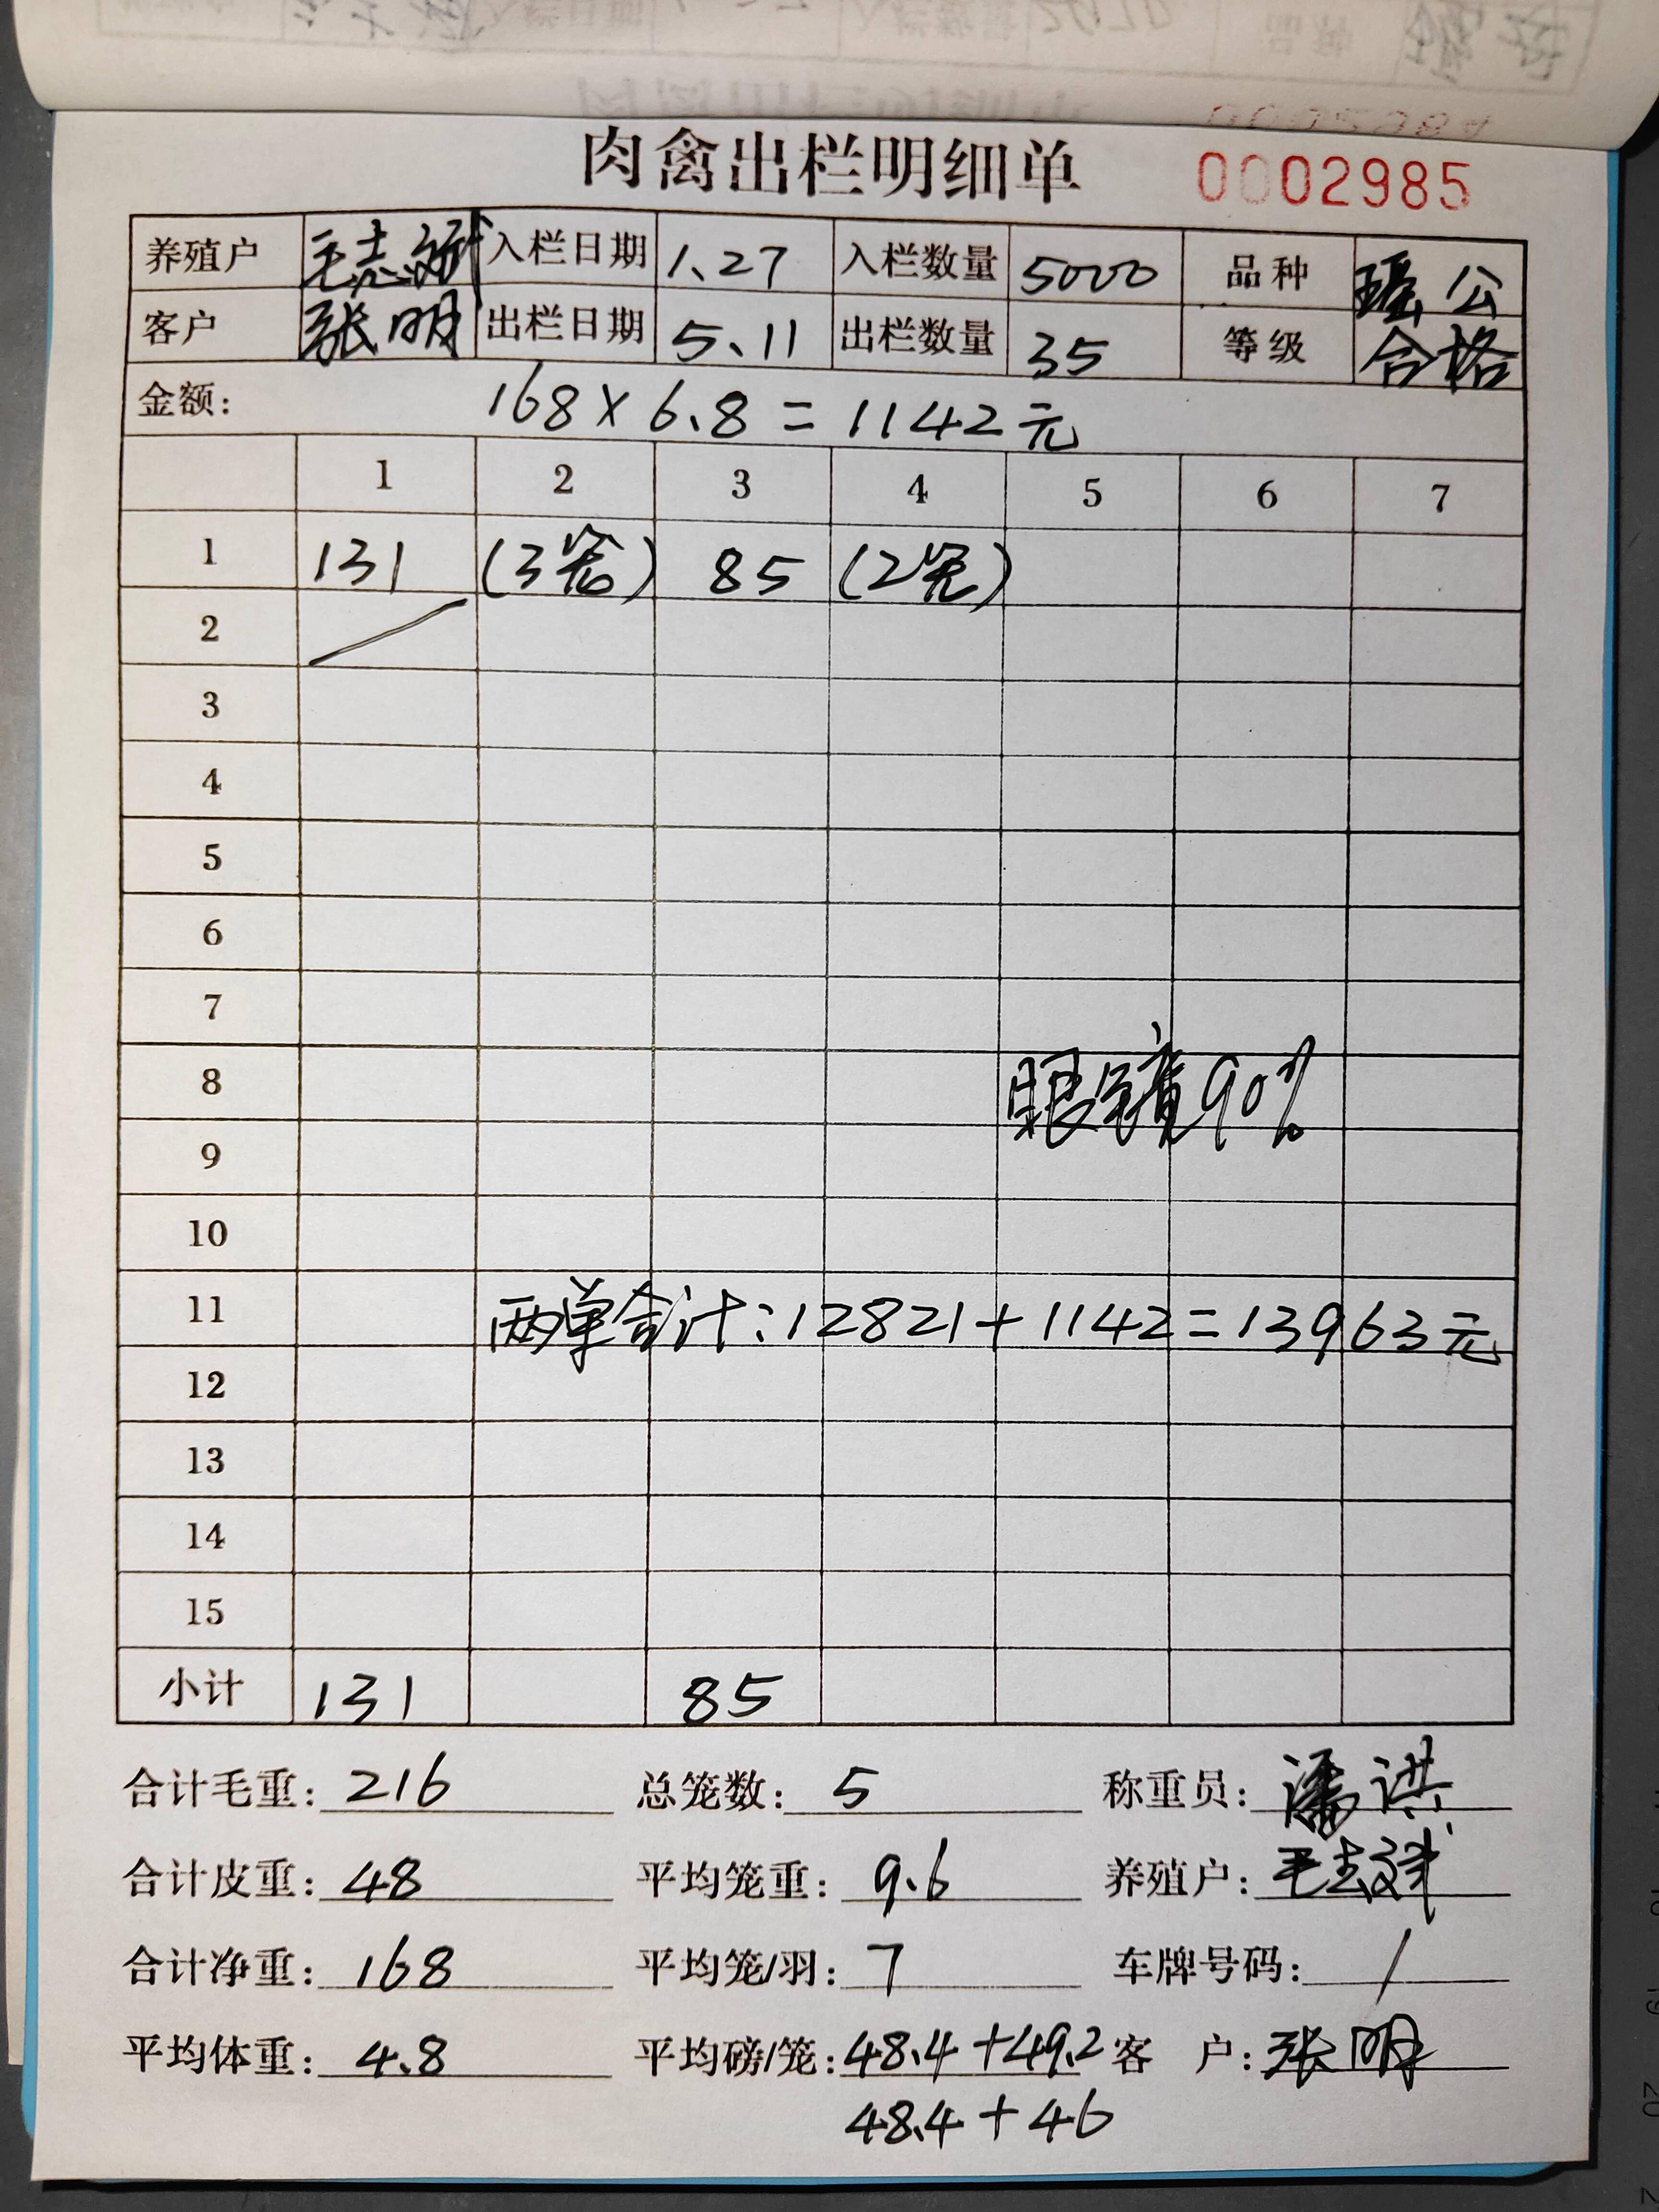 肉禽出栏明细单 0002985
养殖户 毛志斌 入栏日期 1、27 入栏数量 5000 品种 瑶公
客户 张明 出栏日期 5、11 出栏数量 35 等级 合格
金额: 168×6.8=1142元
1 2 3 4 5 6 7
1 131 (3笼) 85 (2笼)
2
3
4
5
6
7
8 眼镜90%
9
10
11 两单合计:12821+1142=13963元
12
13
14
15
小计 131 85
合计毛重: 216 总笼数: 5 称重员: 潘洪
合计皮重: 48 平均笼重: 9.6 养殖户: 毛志斌
合计净重: 168 平均笼/羽: 7 车牌号码: /
平均体重: 4.8 平均磅/笼: 48.4+49.2 客 户: 张明
48.4+46